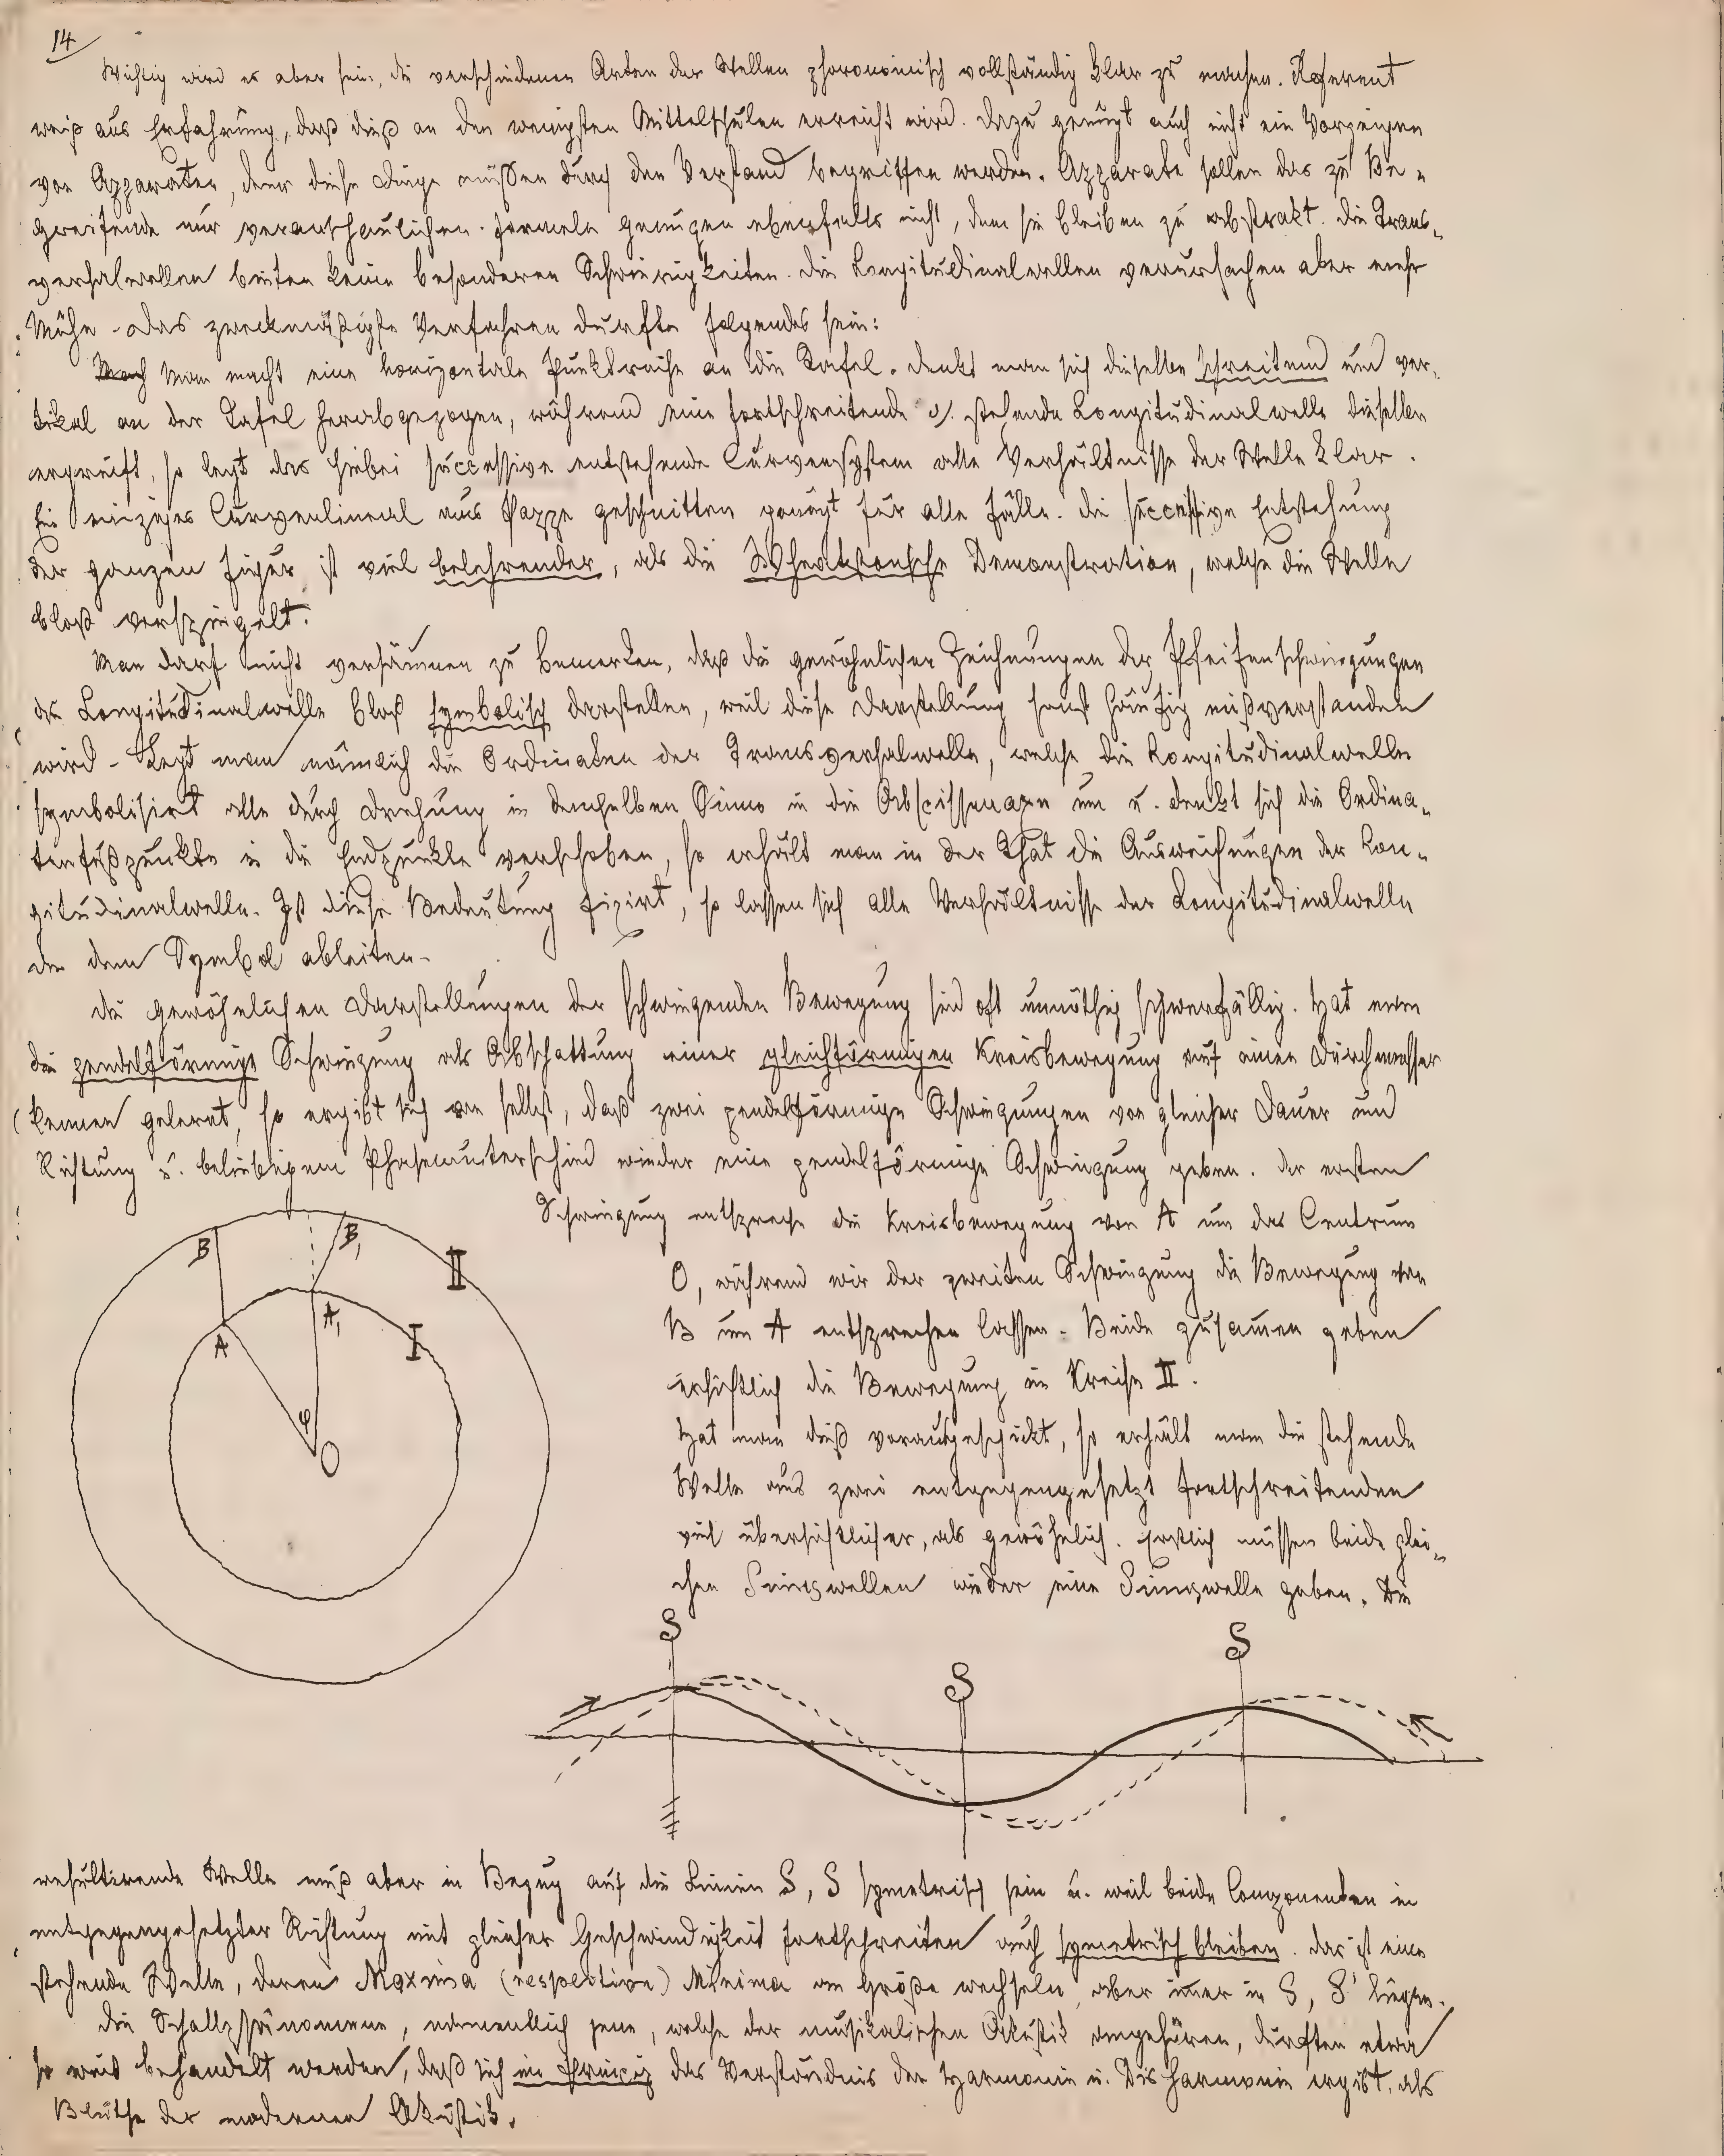 14
Wichtig wird es aber sein, die verschiedenen Arten der Wellen phoronomisch vollständig klar zu machen. Referent
weiß aus Erfahrung, daß dieß an den wenigsten Mittelschulen erreicht wird. Dazu genügt auch nicht ein Vorzeigen
von Apparaten, denn diese Dinge müßen durch den Verstand begriffen werden. Apparate sollen das zu Be-
greifende nur veranschaulichen. Formeln genügen ebenfalls nicht, denn sie bleiben zu abstrakt. Die Trans-
versalwellen bieten keine besonderen Schwierigkeiten. Die Longitudinalwellen verursachen aber mehr
Mühe. Das zweckmäßigste Verfahren durfte folgendes sein:
Man macht eine horizontale Punktreihe an die Tafel. Denkt man sich dieselbe schreitend und ver-
tikal an der Tafel herabgezogen, während eine fortschreitende o/. stehende Longitudinalwelle dieselbe
ergreift, so legt das hiebei successive entstehende Curvensystem alle Verhältnisse der Welle klar.
Ein einziges Curvenlineal aus Pappe geschnitten genügt für alle Fälle. Die successive Entstehung
der ganzen Figur ist viel belehrender, als die Wheatstonsche Demonstration, welche die Welle
bloß verspiegelt.
Man darf nicht versäumen zu bemerken, daß die gewöhnlichen Zeichnungen der Pfeifenschwingungen
die Longitudinalwelle bloß symbolisch darstellen, weil diese Darstellung sonst häufig mißverstanden
wird. Legt man nämlich die Ordinaten der Transversalwelle, welche die Longitudinalwelle
symbolisirt alle durch Drehung in demselben Sinne in die Abscissenaxe um u. denkt sich die Ordina-
tenfußpunkte in die Endpunkte verschoben, so erhält man in der That die Ausweichungen der Lon-
gitudinalwelle. Ist diese Bedeutung fixirt, so lassen sich alle Verhältnisse der Longitudinalwelle
aus dem Symbol ableiten.
Die gewöhnlichen Darstellungen der schwingenden Bewegung sind oft unnöthig schwerfällig. Hat man
die pendelförmige Schwingung als Abschattung einer gleichförmigen Kreisbewegung auf einen Durchmesser
kennen gelernt, so ergibt sich von selbst, daß zwei pendelförmige Schwingungen von gleicher Dauer und
Richtung u. beliebigem Phasenunterschied wieder eine pendelförmige Schwingung geben. Der ersten
Schwingung entspreche die Kreisbewegung von A um das Centrum
O, während wir der zweiten Schwingung die Bewegung von
B um A entsprechen lassen. Beide zusammen geben
ersichtlich die Bewegung im Kreise II.
Hat man dieß vorausgeschickt, so erhält man die stehende
Welle aus zwei entgegengesetzt fortschreitenden
viel übersichtlicher, als gewöhnlich. Erstlich müssen beide glei-
chen Sinuswellen wieder eine Sinuswelle geben. Die
B
B,
II
A
A,
I
φ
O
S
S
S
resultirende Welle muß aber in Bezug auf die Linien S, S symetrisch sein u. weil beide Componenten in
entgegengesetzter Richtung mit gleicher Geschwindigkeit fortschreiten auch symetrisch bleiben. Das ist eine
stehende Welle, deren Maxima (respective) Minima an Größe wechseln, aber immer in S, S liegen.
Die Schallphänomene, namentlich jene, welche der musikalischen Akustik angehören, durften etwa
so weit behandelt werden, daß sich im Princip das Verständnis der Harmonie u. Disharmonie ergibt, als
Blüthe der modernen Akustik.